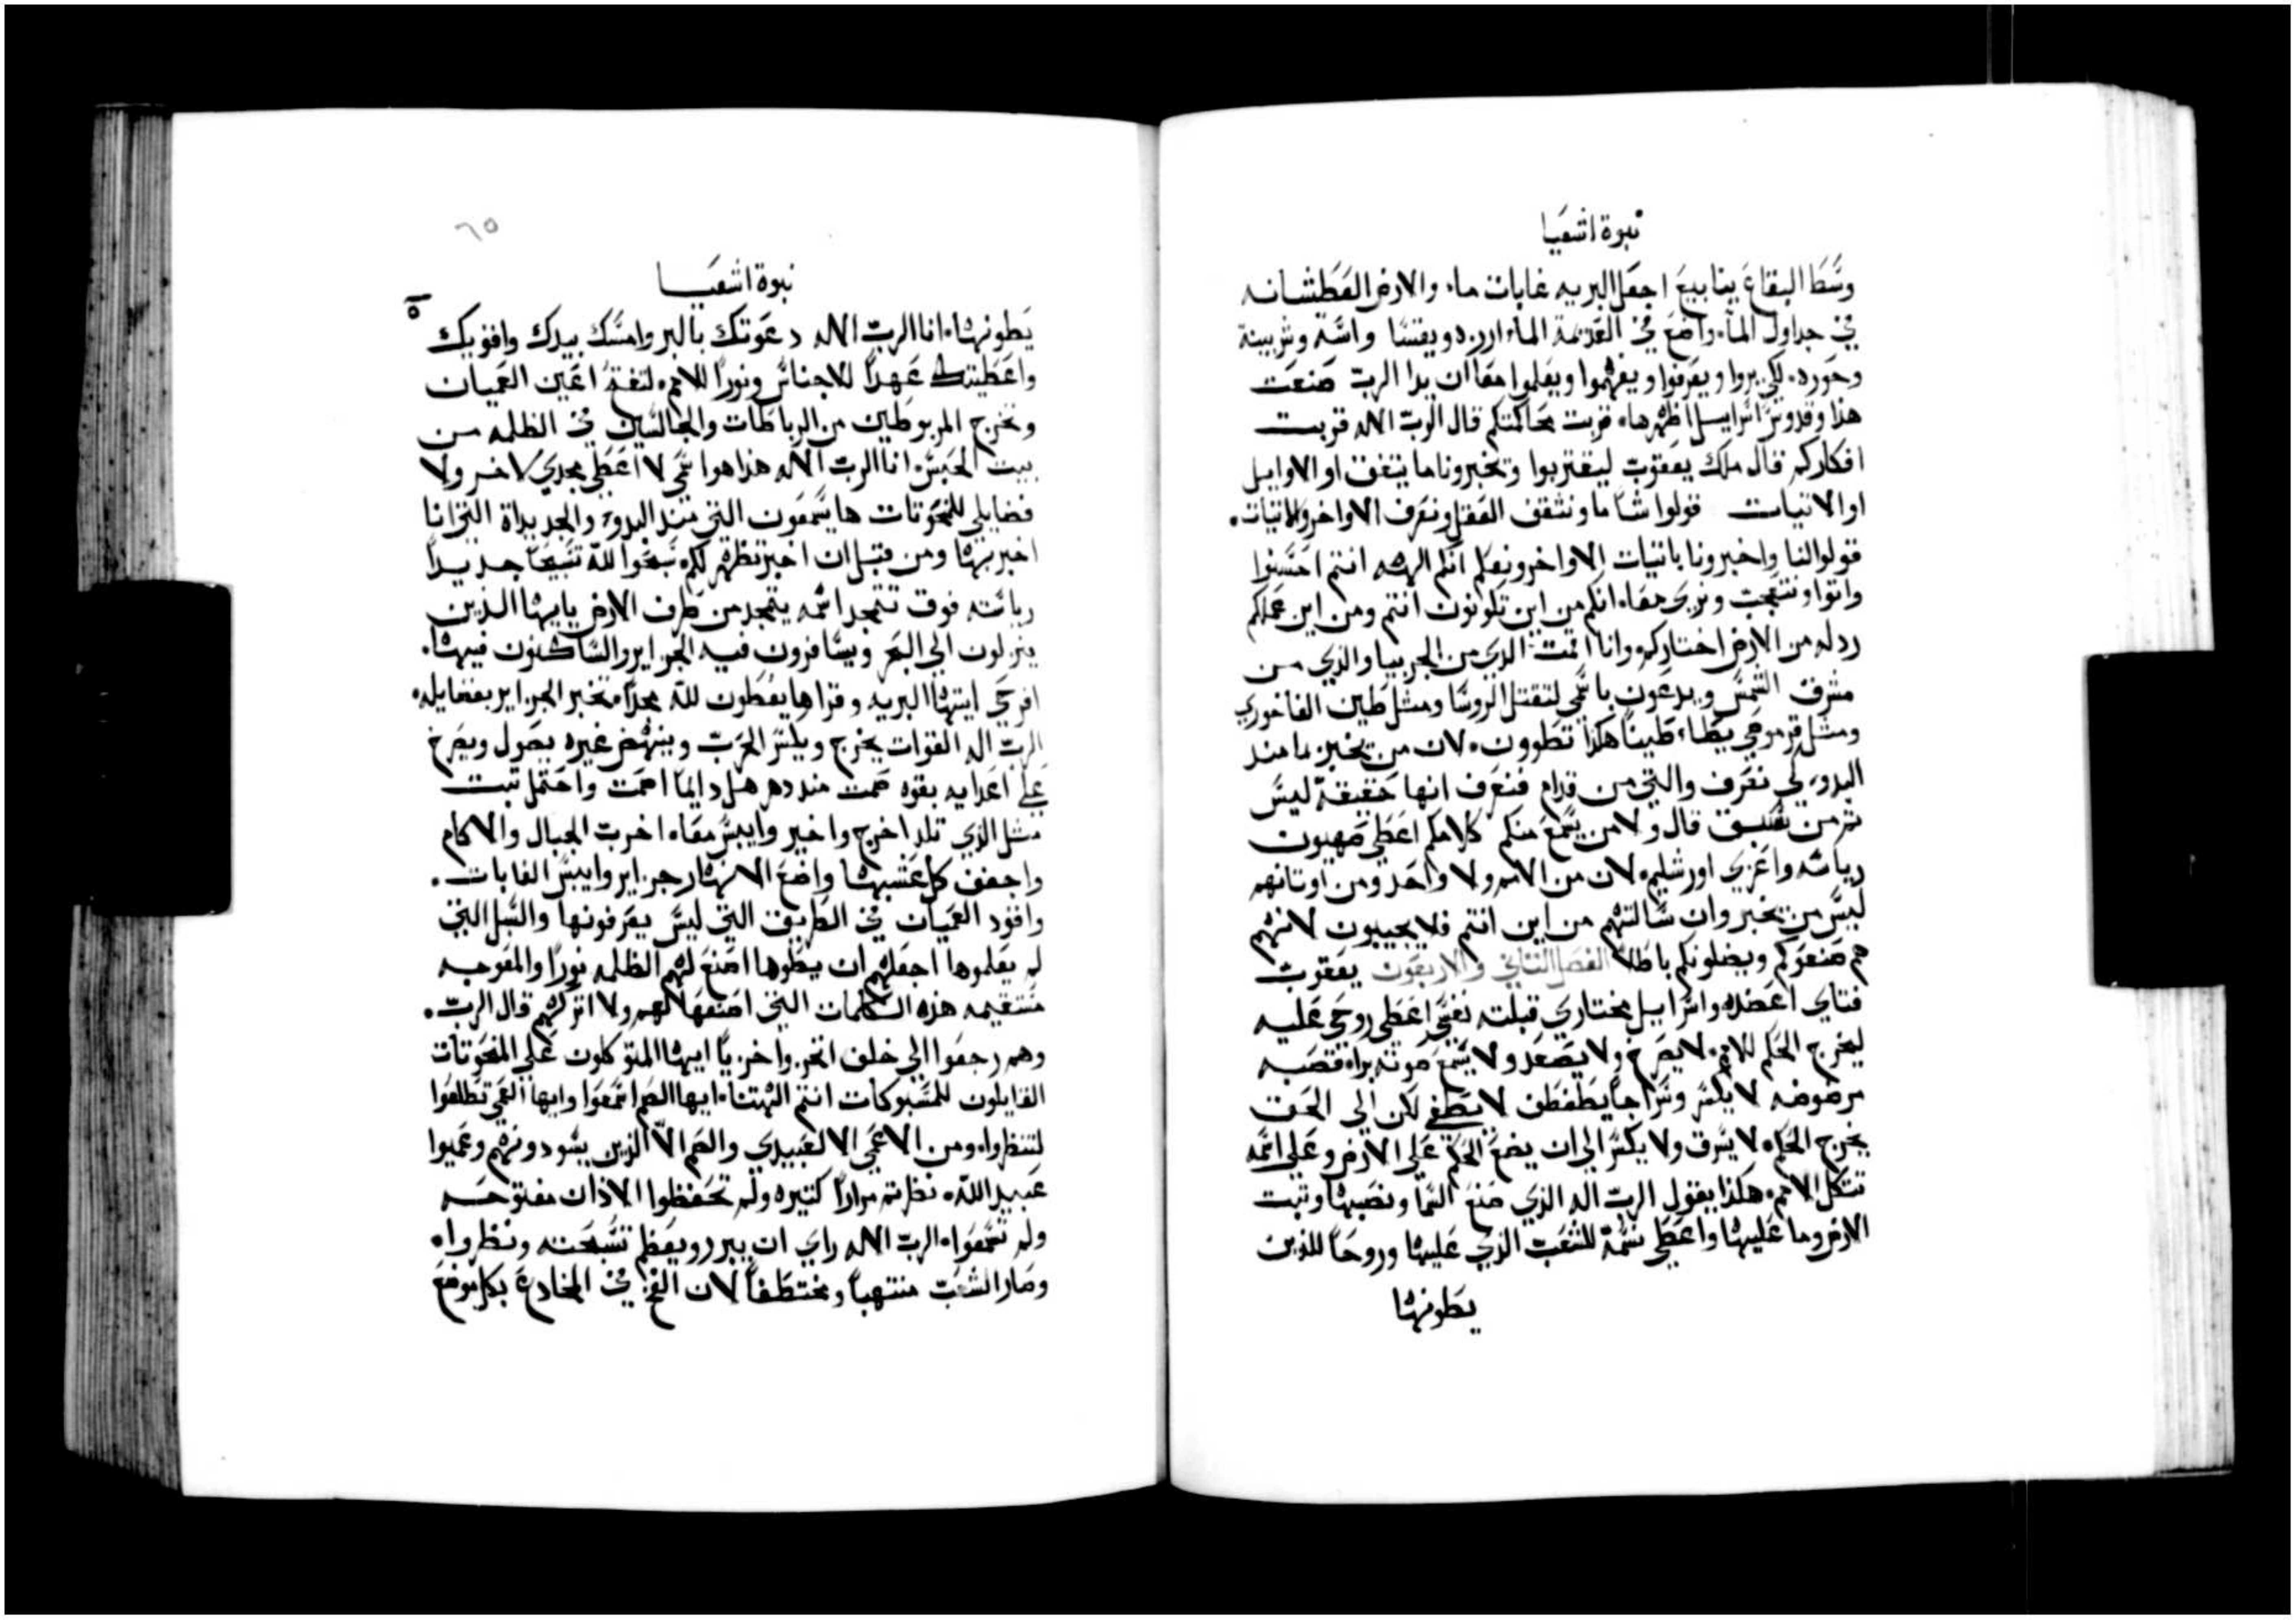 نبوة اشعيا
وسط البقاع ينابيع اجعل البريه غابات ماء والارض العطشانه
في جداول الماء واضع في العديمة الماء ارزه ويقسا واسه وشربينة
وحوره لكي يروا ويعرفوا ويفهموا ويعلموا معا ان يدا الرب صنعت
هذا وقدوس اسراييل اظهرها قربت محاكمتكم قال الرب الاله قربت
افكاركم قال ملك يعقوب ليقتربوا وتخبرونا ما يتفق او الاوايل
او الاتيات قولوا شا ما ونثقف العقل ونعرف الاواخر والاتيات
قولوا لنا واخبرونا باتيات الاواخر ونعلم انكم الهه انتم احسنوا
واتوا ونتعجب ونري معا انكم من اين تكونون انتم ومن اين عملكم
ردله من الارض اختاركم وانا اقمت الذي من الجربيا والذي من
مشرق الشمس ويدعون باسمي لتقتل الروسا ومثل طين الفاخوري
ومثل قرموجي يطاء طينا هكذا تطوون لان من يخبر ما منذ
البدو لكي نعرف والتي من قدام فنعرف انها حقيقة ليس
من سبق قال ولا من يسمع منكم كلامكم اعطي صهيون
رياسه واعزي اورشليم لان من الامم ولا واحد ومن اوتانهم
ليس من يخبر وان سالتهم من اين انتم فلا يجيبون لانهم
هم صنعوكم ويضلونكم باطلا الفصل التاني والاربعون يعقوب
فتاي اعضده واسراييل مختاري قبلته نفسي اعطي روحي عليه
ليخرج الحكم للامم لا يصرخ ولا يصعد ولا يسمع صوته براه قصبه
مرضوضه لا يكسر وسراجا يطفطف لا يطفي لكن الي الحق
يخرج الحكم لا يشرق ولا يكسر الي ان يضع الحكم علي الارض وعلي اسمه
تتكل الامم هكذا يقول الرب اله الذي صنع السما ونصبها وتبت
الارض وما عليها واعطي نسمة للشعب الذي عليها وروحا للذين
يطونها
٦٥
نبوة اشعيا
يطونها انا الرب الاله دعوتك بالبر وامسك بيدك واقويك
واعطيتك عهدا للاجناس ونورا للامم لتفتح اعين العميان
وتخرج المربوطين من الرباطات والجالسين في الظلمه من
بيت الحبس انا الرب الاله هذا هو اسمي لا اعطي مجدي لاخر ولا
فضايلي للنحوتات ها يسمعون التي منذ البدو والجديداة التي انا
اخبر بها ومن قبل ان اخبر تظهر لكم سبحوا لله تسبيحا جديدا
رياسته فوق تتمجد اسمه يتمجد من طرف الارض يا ايها الذين
ينزلون الي البحر ويسافرون فيه الجزاير والساكنون فيها
افرحي ايتها البريه وقراها يعطون لله مجدا مخبر الجزاير بفضايله
الرب اله القوات يخرج ويكسر الحرب وينهض غيره يصول ويصرخ
علي اعدايه بقوه صمت منذ دهر هل دايما اصمت واحتمل تبت
مثل الذي تلد اخرج واخير وايبس معا اخرب الجبال والاكام
واجفف كل عشبها واضع الانهار جزاير وايبس الغابات
واقود العميان في الطريق التي ليس يعرفونها والسبل التي
لم يعلموها اجعلهم ان يطوها اصنع لهم الظلمه نورا والمعوجه
مستقيمه هذه الكلمات التي اصنعها لهم ولا اتركهم قال الرب
وهم رجعوا الي خلف اتخزوا خزيا ايها المتوكلون علي المنحوتات
القايلون للمسبوكات انتم الهتنا ايها الصم اسمعوا وايها العمي تطلعوا
لتنظروا ومن الاعمي الا لعبيدي والصم الا الذين يسودونهم وعميوا
عبيد الله نظرتم مرارا كتيره ولم تحفظوا الاذان مفتوحه
ولم تسمعوا الرب الاله راي ان يبرر ويعظم تسبحته ونظروا
وصار الشعب منتهبا ومختطفا لان الفخ في المخادع بكل موضع